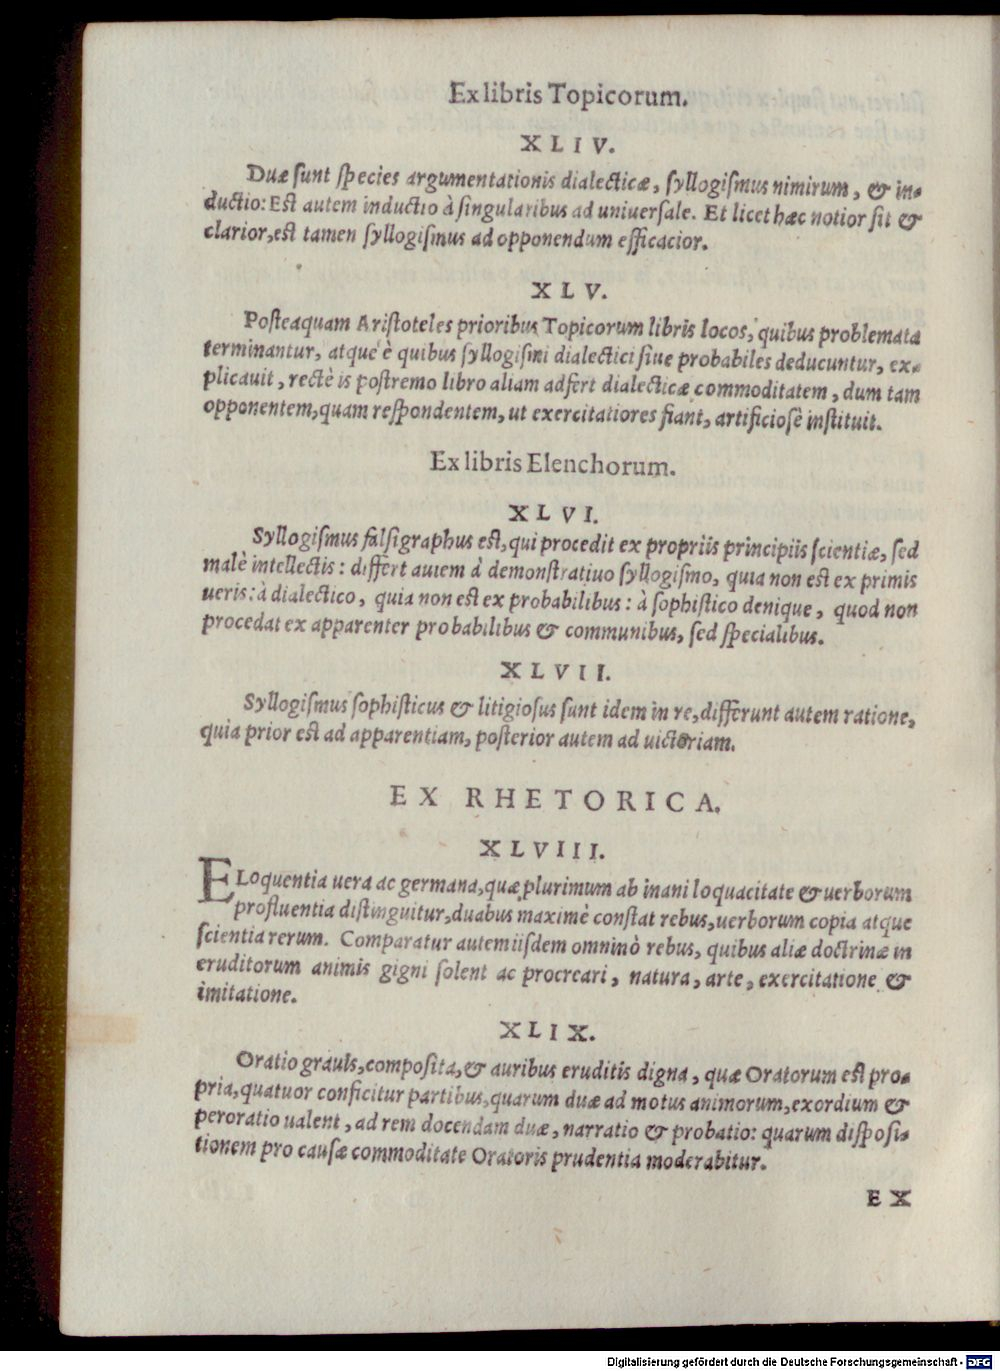 Ex libris Topicorum.
XLIV.
Duæ ſunt ſpecies argumentationis dialecticæ, ſyllogiſmus nimirum, & in-
ductio: Eſt autem inductio à ſingularibus ad uniuerſale. Et licet hæc notior ſit &
clarior, eſt tamen ſyllogiſmus ad opponendum efficacior.
XLV.
Poſteaquam Ariſtoteles prioribus Topicorum libris locos, quibus problemata
terminantur, atque è quibus ſyllogiſmi dialectici ſiue probabiles deducuntur, ex-
plicauit, rectè is poſtremo libro aliam adfert dialecticæ commoditatem, dum tam
opponentem, quam reſpondentem, ut exercitatiores fiant, artificioſè inſtituit.
Ex libris Elenchorum.
XLVI.
Syllogiſmus falſigraphus eſt, qui procedit ex propriis principiis ſcientiæ, ſed
malè intellectis: differt autem à demonſtratiuo ſyllogiſmo, quia non eſt ex primis
ueris: à dialectico, quia non eſt ex probabilibus: à ſophiſtico denique, quod non
procedat ex apparenter probabilibus & communibus, ſed ſpecialibus.
XLVII.
Syllogiſmus ſophiſticus & litigioſus ſunt idem in re, differunt autem ratione,
quia prior eſt ad apparentiam, poſterior autem ad uictoriam.
EX RHETORICA.
XLVIII.
ELoquentia uera ac germana, quæ plurimum ab inani loquacitate & uerborum
profluentia diſtinguitur, duabus maximè conſtat rebus, uerborum copia atque
ſcientia rerum. Comparatur autem iiſdem omninò rebus, quibus aliæ doctrinæ in
eruditorum animis gigni ſolent ac procreari, natura, arte, exercitatione &
imitatione.
XLIX.
Oratio grauis, compoſita, & auribus eruditis digna, quæ Oratorum eſt pro-
pria, quatuor conficitur partibus, quarum duæ ad motus animorum, exordium &
peroratio ualent, ad rem docendam duæ, narratio & probatio: quarum diſpoſi-
tionem pro cauſæ commoditate Oratoris prudentia moderabitur.
EX
Digitalisierung gefördert durch die Deutsche Forschungsgemeinschaft - DFG